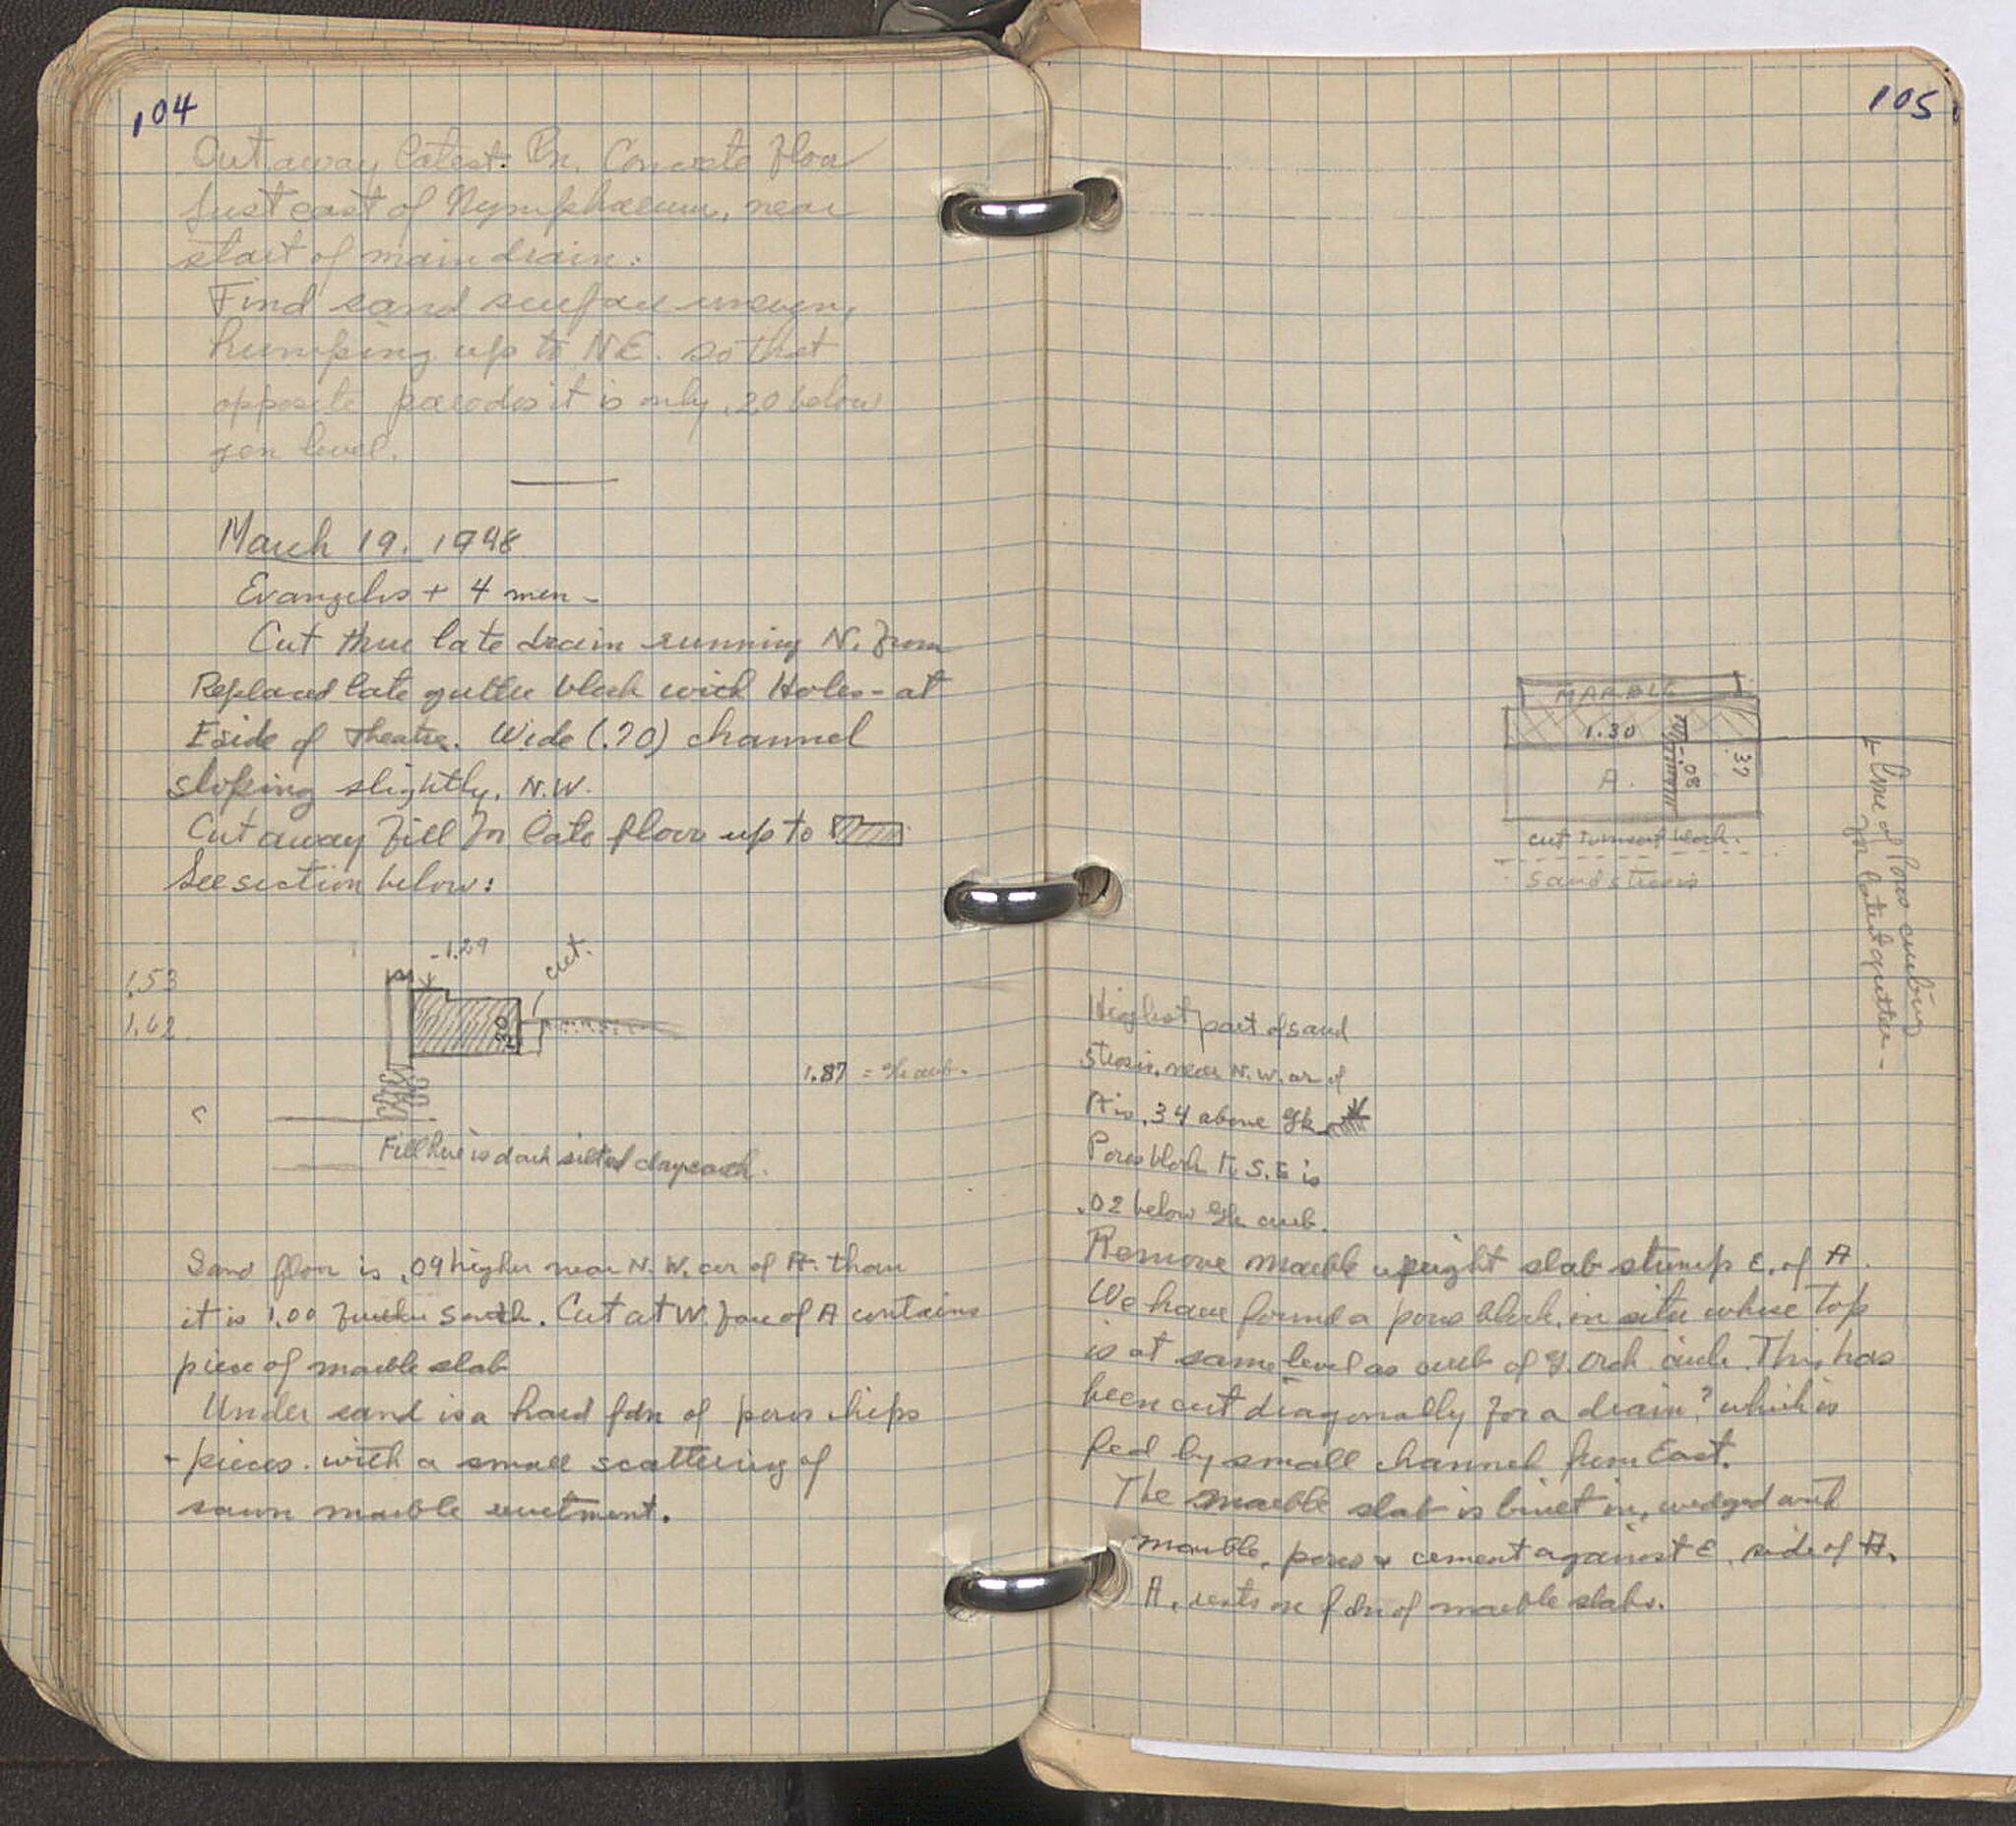 104
Cut away latest Rn. Concrete floor
just east of Nymphaeum, near
start of main drain:
Find sand surface uneven,
humping up to NE. so that
opposite parodos it is only .20 below
gen level.
March 19. 1948
Evangelis + 4 men -
Cut thru late drain running N. from
Replaced late gutter block with Holes - at
E side of Theatre. Wide (.70) channel
sloping slightly, N.W.
Cut away fill for late floor up to
See section below:
-1.29
cut.
1.53
1.62
.30
1.87 = Gk curb.
Fill here is dark silted clay earth.
Sand floor is .09 higher near N.W. cor of A. than
it is 1.00 further South. Cut at W. face of A contains
piece of marble slab
Under sand is a hard fdn of poros chips
+ pieces. with a small scattering of
sawn marble revetment.
105
MARBLE
1.30
A.
.08
.37
cut
block.
sand strosis
Line of Poros curbing
for latest gutter -
Highest part of sand
strosis, near N.W. cor of
A is .34 above Gk
Poros block to S.E is
.02 below Gk curb.
Remove marble upright slab stump E. of A.
We have found a poros block, in situ whose top
is at same level as curb of G. Orch. circle. This has
been cut diagonally for a drain? which is
fed by small channel from East.
The marble slab is built in, wedged with
marble, poros & cement against E. side of A.
A. rests on fdn of marble slabs.